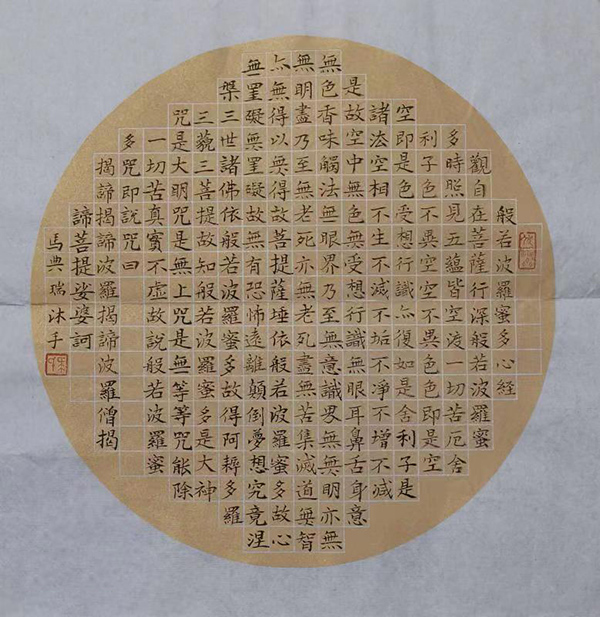 般若波羅蜜多心経
觀自在菩薩行深般若波羅蜜
多時照見五蘊皆空渡一切苦厄舍
利子色不異空空不異色色即是空
空即是色受想行識亦復如是舍利子是
諸法空相不生不滅不垢不淨不增不減
是故空中無色無受想行識無眼耳鼻舌身意
無色香味觸法無眼界乃至無意識界無無明亦無
無明盡乃至無老死亦無老死盡無苦集滅道無智
亦無得以無得故菩提薩埵依般若波羅蜜多故心
無罣礙無罣礙故無有恐怖遠離顛倒夢想究竟涅
槃三世諸佛依般若波羅蜜多故得阿耨多羅
三藐三菩提故知般若波羅蜜多是大神
咒是大明咒是無上咒是無等等咒能除
一切苦真實不虛故說般若波羅蜜
多咒即說咒曰
揭諦揭諦波羅揭諦波羅僧揭
諦菩提娑婆訶
馬典瑞沐手